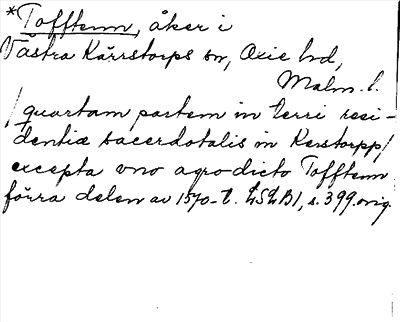 *Tofftenn, åker i
Västra Kärrstorps sn, Oxie hd,
Malm. l.
/quartam partem in terri resi-
dentiæ sacerdotalis in Kerstorpp/
excepta vno agro dicto Tofftenn
förra delen av 1570-t. LSLB1, s. 399. orig.